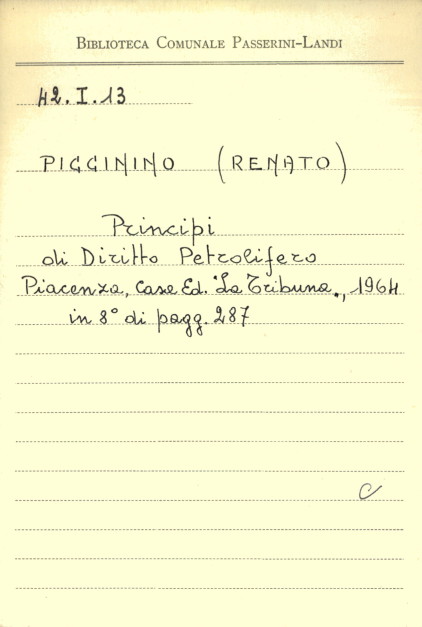 BIBLIOTECA COMUNALE PASSERINI-LANDI
42.I.13
PIGGININO (RENATO)
Principi
di Diritto Petrolifero
Piacenza, Casa Ed. "La Tribuna", 1964
in 8° di pagg. 287
C